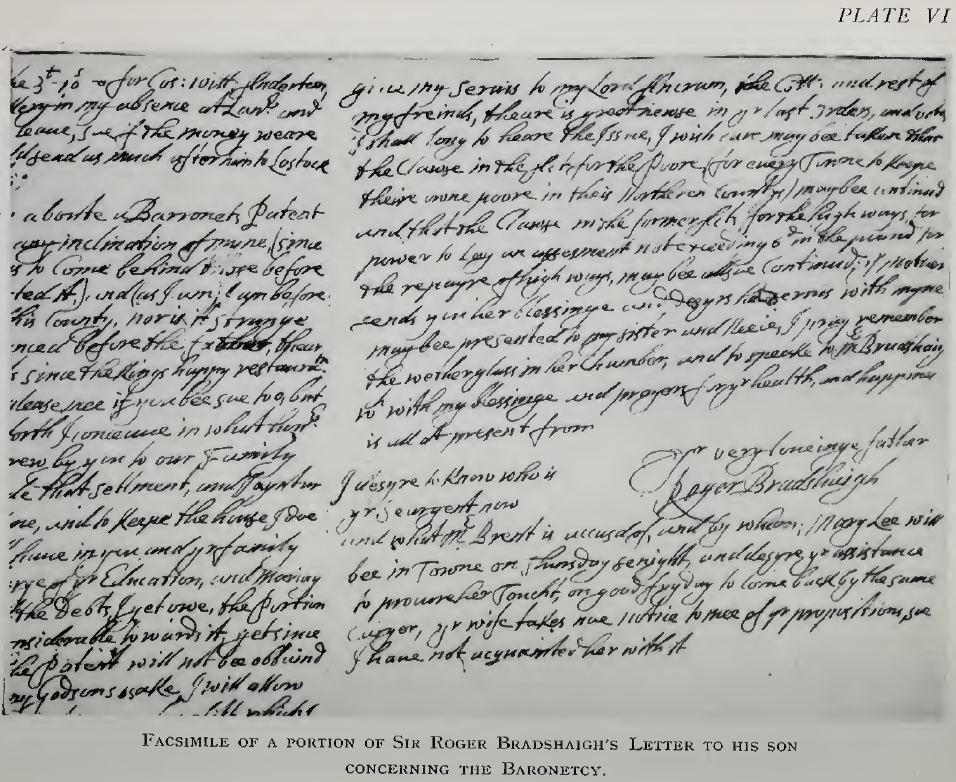 PLATE VI
for Cos: with Anderton
in my absence at Land: and
leave, soe if the money weare
send as much after him to Lostock
aboute a Barronets Patent
any inclination of myne, (since
to Come behind those before
it,) and (as I am,) I am before
this County, nor is it strange
before the father,
since the Kings happy restaura:
please mee if you bee soe to, but
forth I conceaue in what
by you to our Family
that setlment, and
and to Keepe the house I doe
haue in you and yr family
of yr Education, and Mariag
the Debts I yet owe, the Portion
towards it, yet since
the Patent will not bee obtaind
my Godsons sake, I will allow
giue my seruis to my Lord Ancram, the Coll: and rest of
my freinds, theare is great newse in yr last 3rders, and
I shall long to heare the Issue, I wish care may bee taken that
the Clause in the Act for the Poore, (for every Towne to Keepe
theire owne poore in theis Northeren County) may bee continued
and that the Clause in the former Act, for the high ways, for
power to Lay an assesment not exceeding 6d in the pound for
the repayre of high ways, may bee allsoe Continud; yr mother
sends you her blessinge and desyrs her seruis with myne
may bee presented to my sister and Neeces, I pray remember
the wetherglass in her Chamber, and to speake to Mr Bradshaig
wch with my blessinge and prayers for yr health, and happines
is all at present from
Yr very loueinge father
Roger Bradshaigh
I desyre to Know who is
yr Seargent now
and what Mr Brent is accused of, and by whom; Mary Lee will
bee in Towne on Thursday senight, and desyre yr assistance
to procure her Toucht, on good fryday to come back by the same
Caryer, yr wife takes noe notice to mee of yr propositions, soe
I haue not acquainted her with it
FACSIMILE OF A PORTION OF SIR ROGER BRADSHAIGH'S LETTER TO HIS SON
CONCERNING THE BARONETCY.